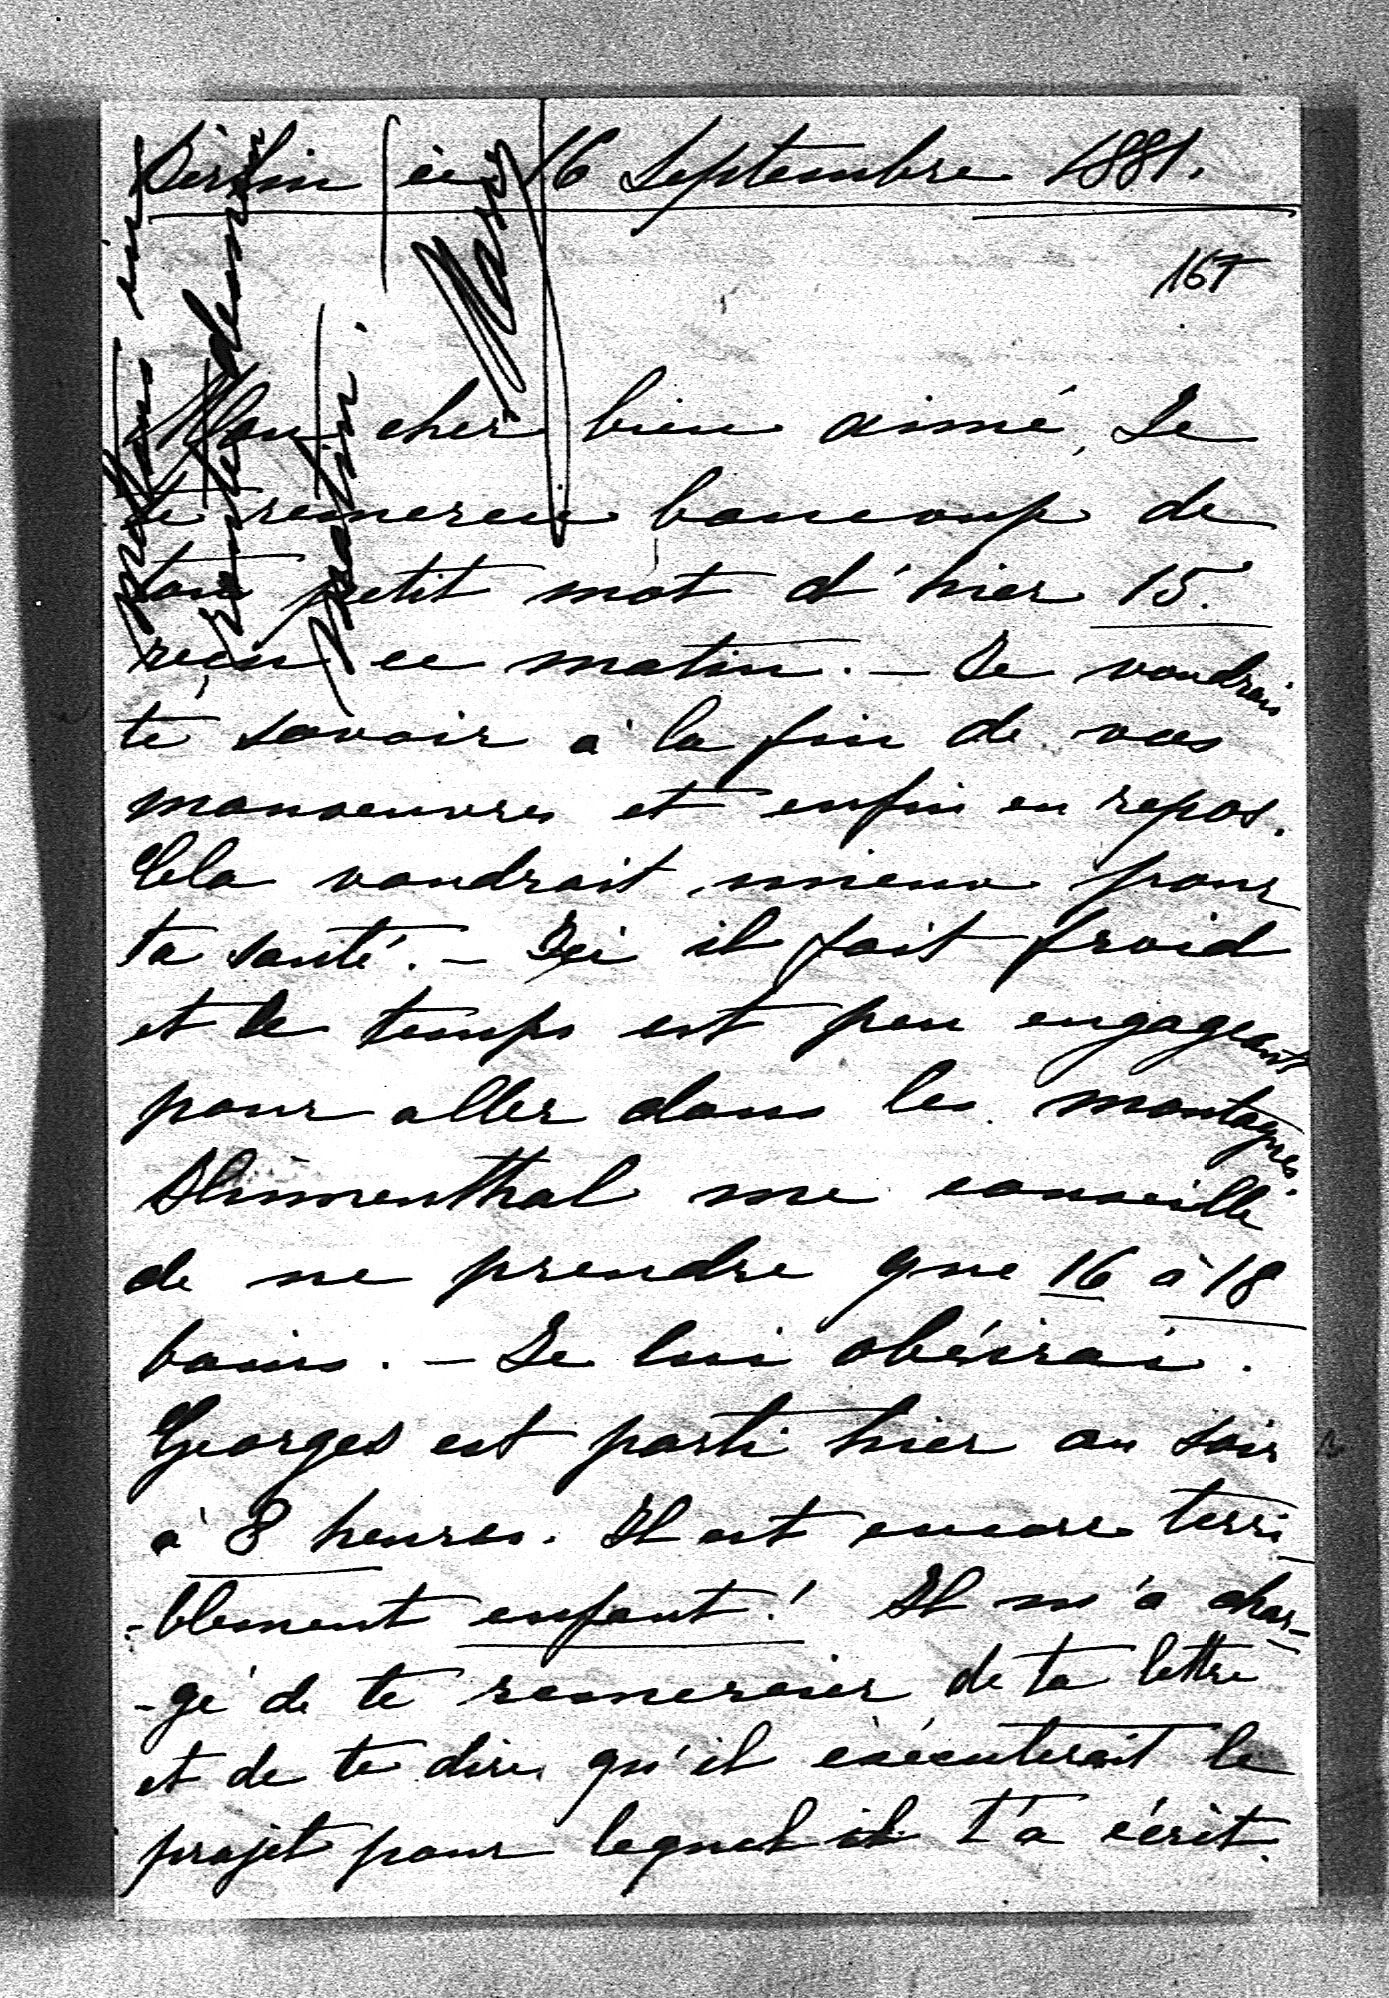 Berlin ce 16 Septembre 1881.
167
Mon cher bien aimé, Je
te remercie baucoup de
ton petit mot d'hier 15.
reçu ce matin. – Je voudrais
te savoir à la fin de vos
manoeuvres et enfin en repos.
Cela vaudrait mieux pour
ta santé. – Ici il fait froid
et le temps est peu engageant
pour aller dans les montagnes.
Blumenthal me conseille
de ne prendre que 16 à 18
bains. – Je lui obéirai.
Georges est parti hier au soir
à 8 heures. Il est encore terri
-blement enfant! Il m'a char-
-gé de te remercier de ta lettre
et de te dire qu'il exécuterait le
projet pour lequel il t'a écrit.
demain
matin.
Mary